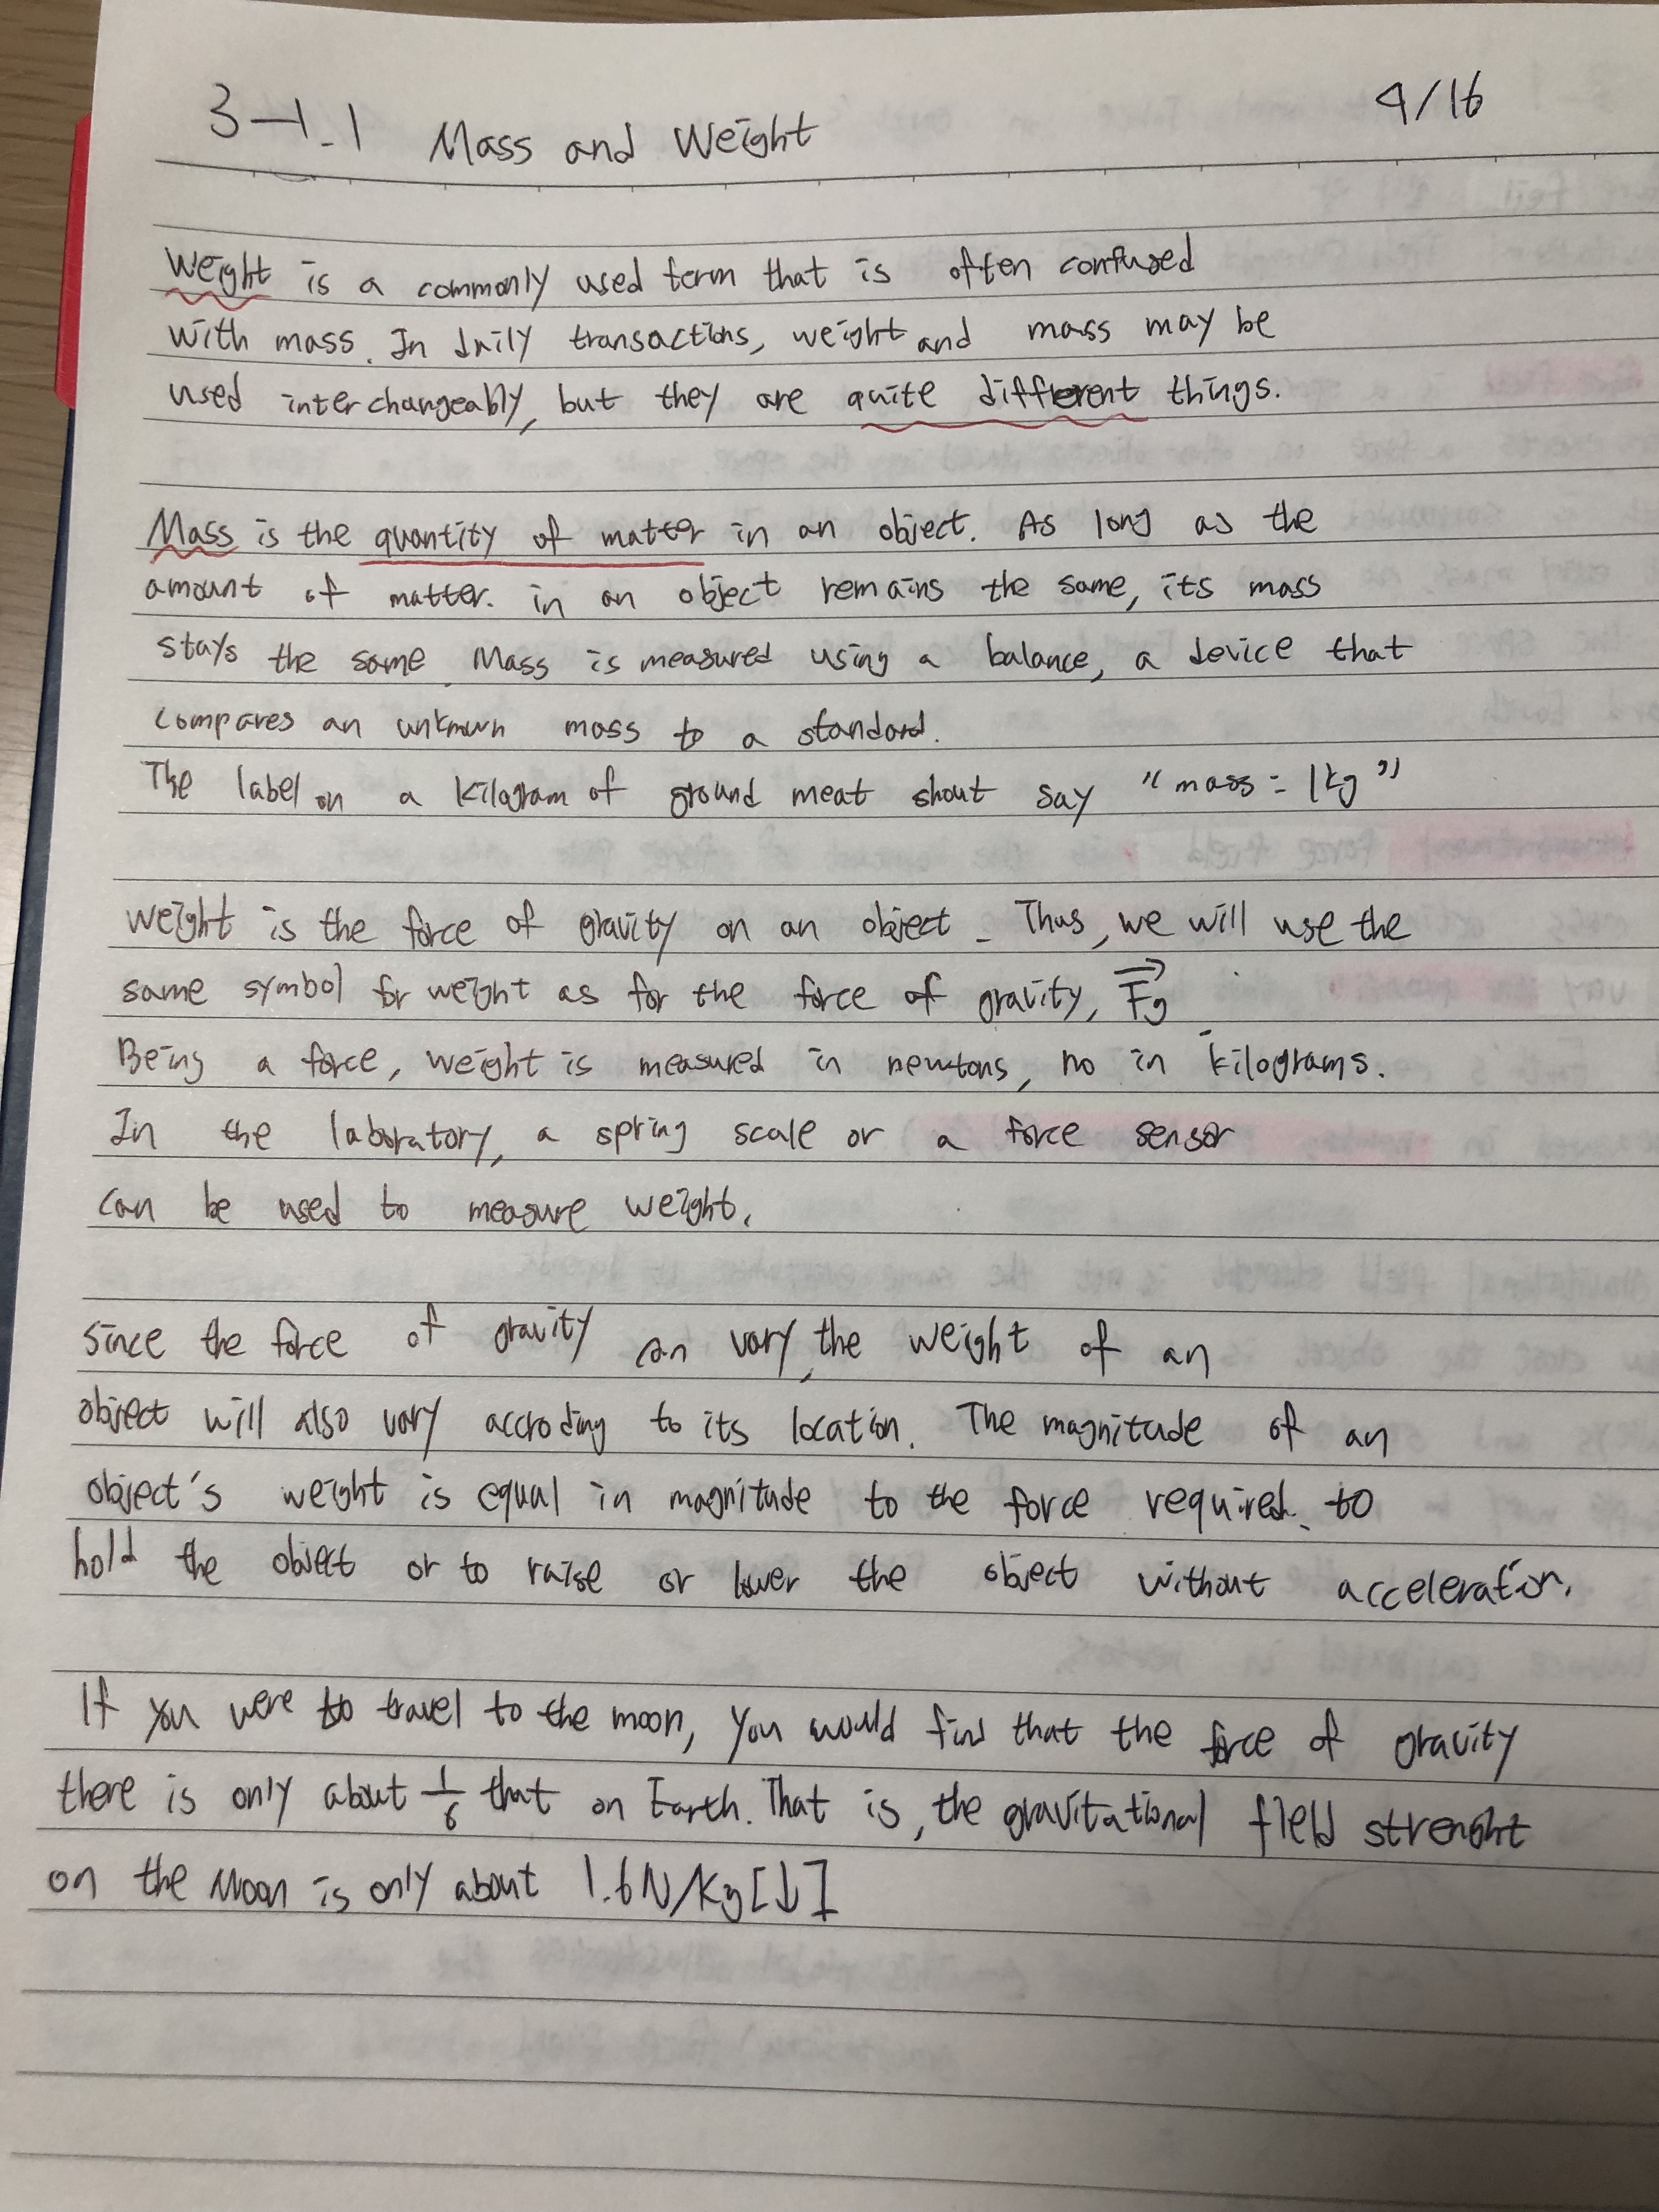 3-1.1 Mass and Weight 4/16
Weight is a commonly used term that is often confused
with mass. In daily transactions, weight and mass may be
used interchangeably, but they are quite different things.
Mass is the quantity of matter in an object. As long as the
amount of matter. in an object remains the same, its mass
stays the same. Mass is measured using a balance, a device that
compares an unknown mass to a standard.
The label on a kilogram of ground meat shout say "mass = 1kg"
weight is the force of gravity on an object. Thus, we will use the
same symbol for weight as for the force of gravity, F⃗g
Being a force, weight is measured in newtons, no in kilograms.
In the laboratory, a spring scale or a force sensor
can be used to measure weight.
Since the force of gravity can vary, the weight of an
object will also vary accroding to its location. The magnitude of an
object's weight is equal in magnitude to the force required to
hold the object or to raise or lower the object without acceleration.
If you were to travel to the moon, you would find that the force of gravity
there is only about 1/6 that on Earth. That is, the gravitational field strenght
on the Moon is only about 1.6N/kg[↓]